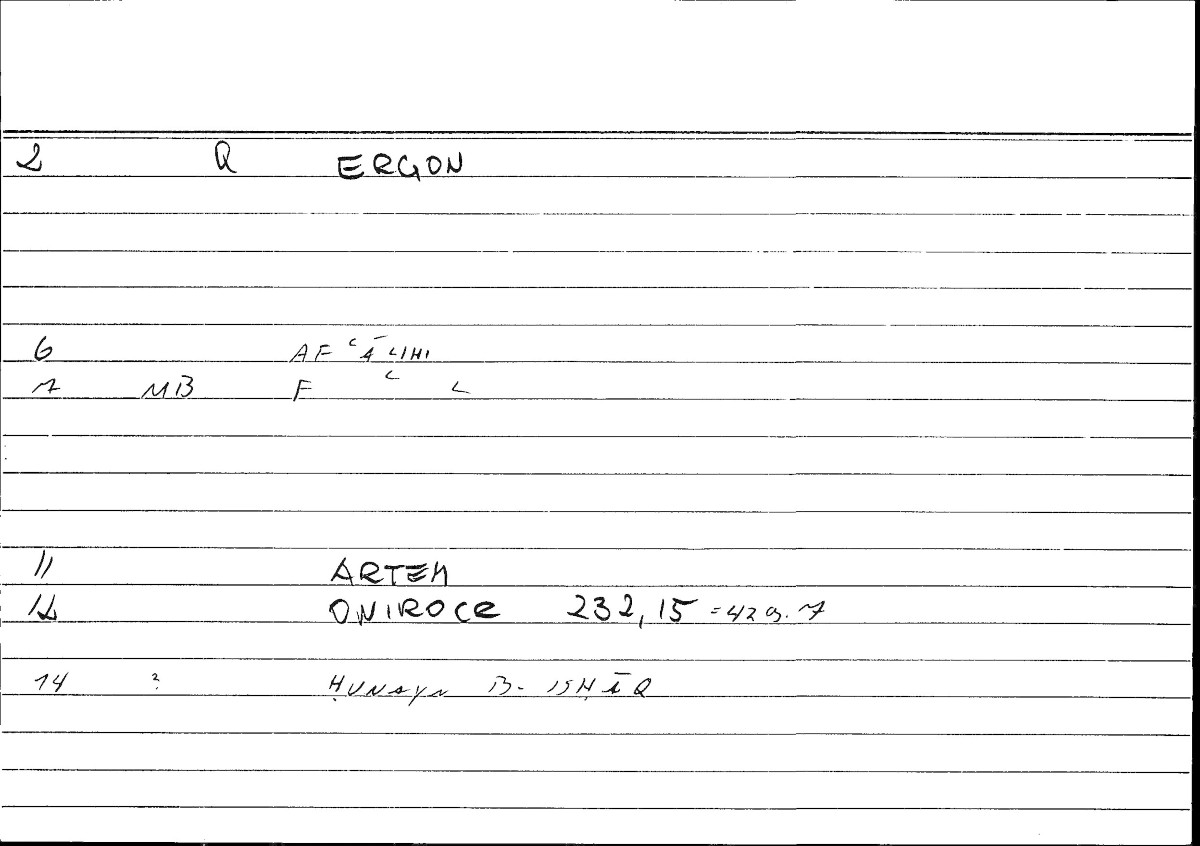 2 Q ERGON
6 AF ʿĀLIHI
7 MB F ʿ L
11 ARTEM
12 ONIROCR 232,15 = 429.7
14 ? ḤUNAYN B. ISḤĀQ